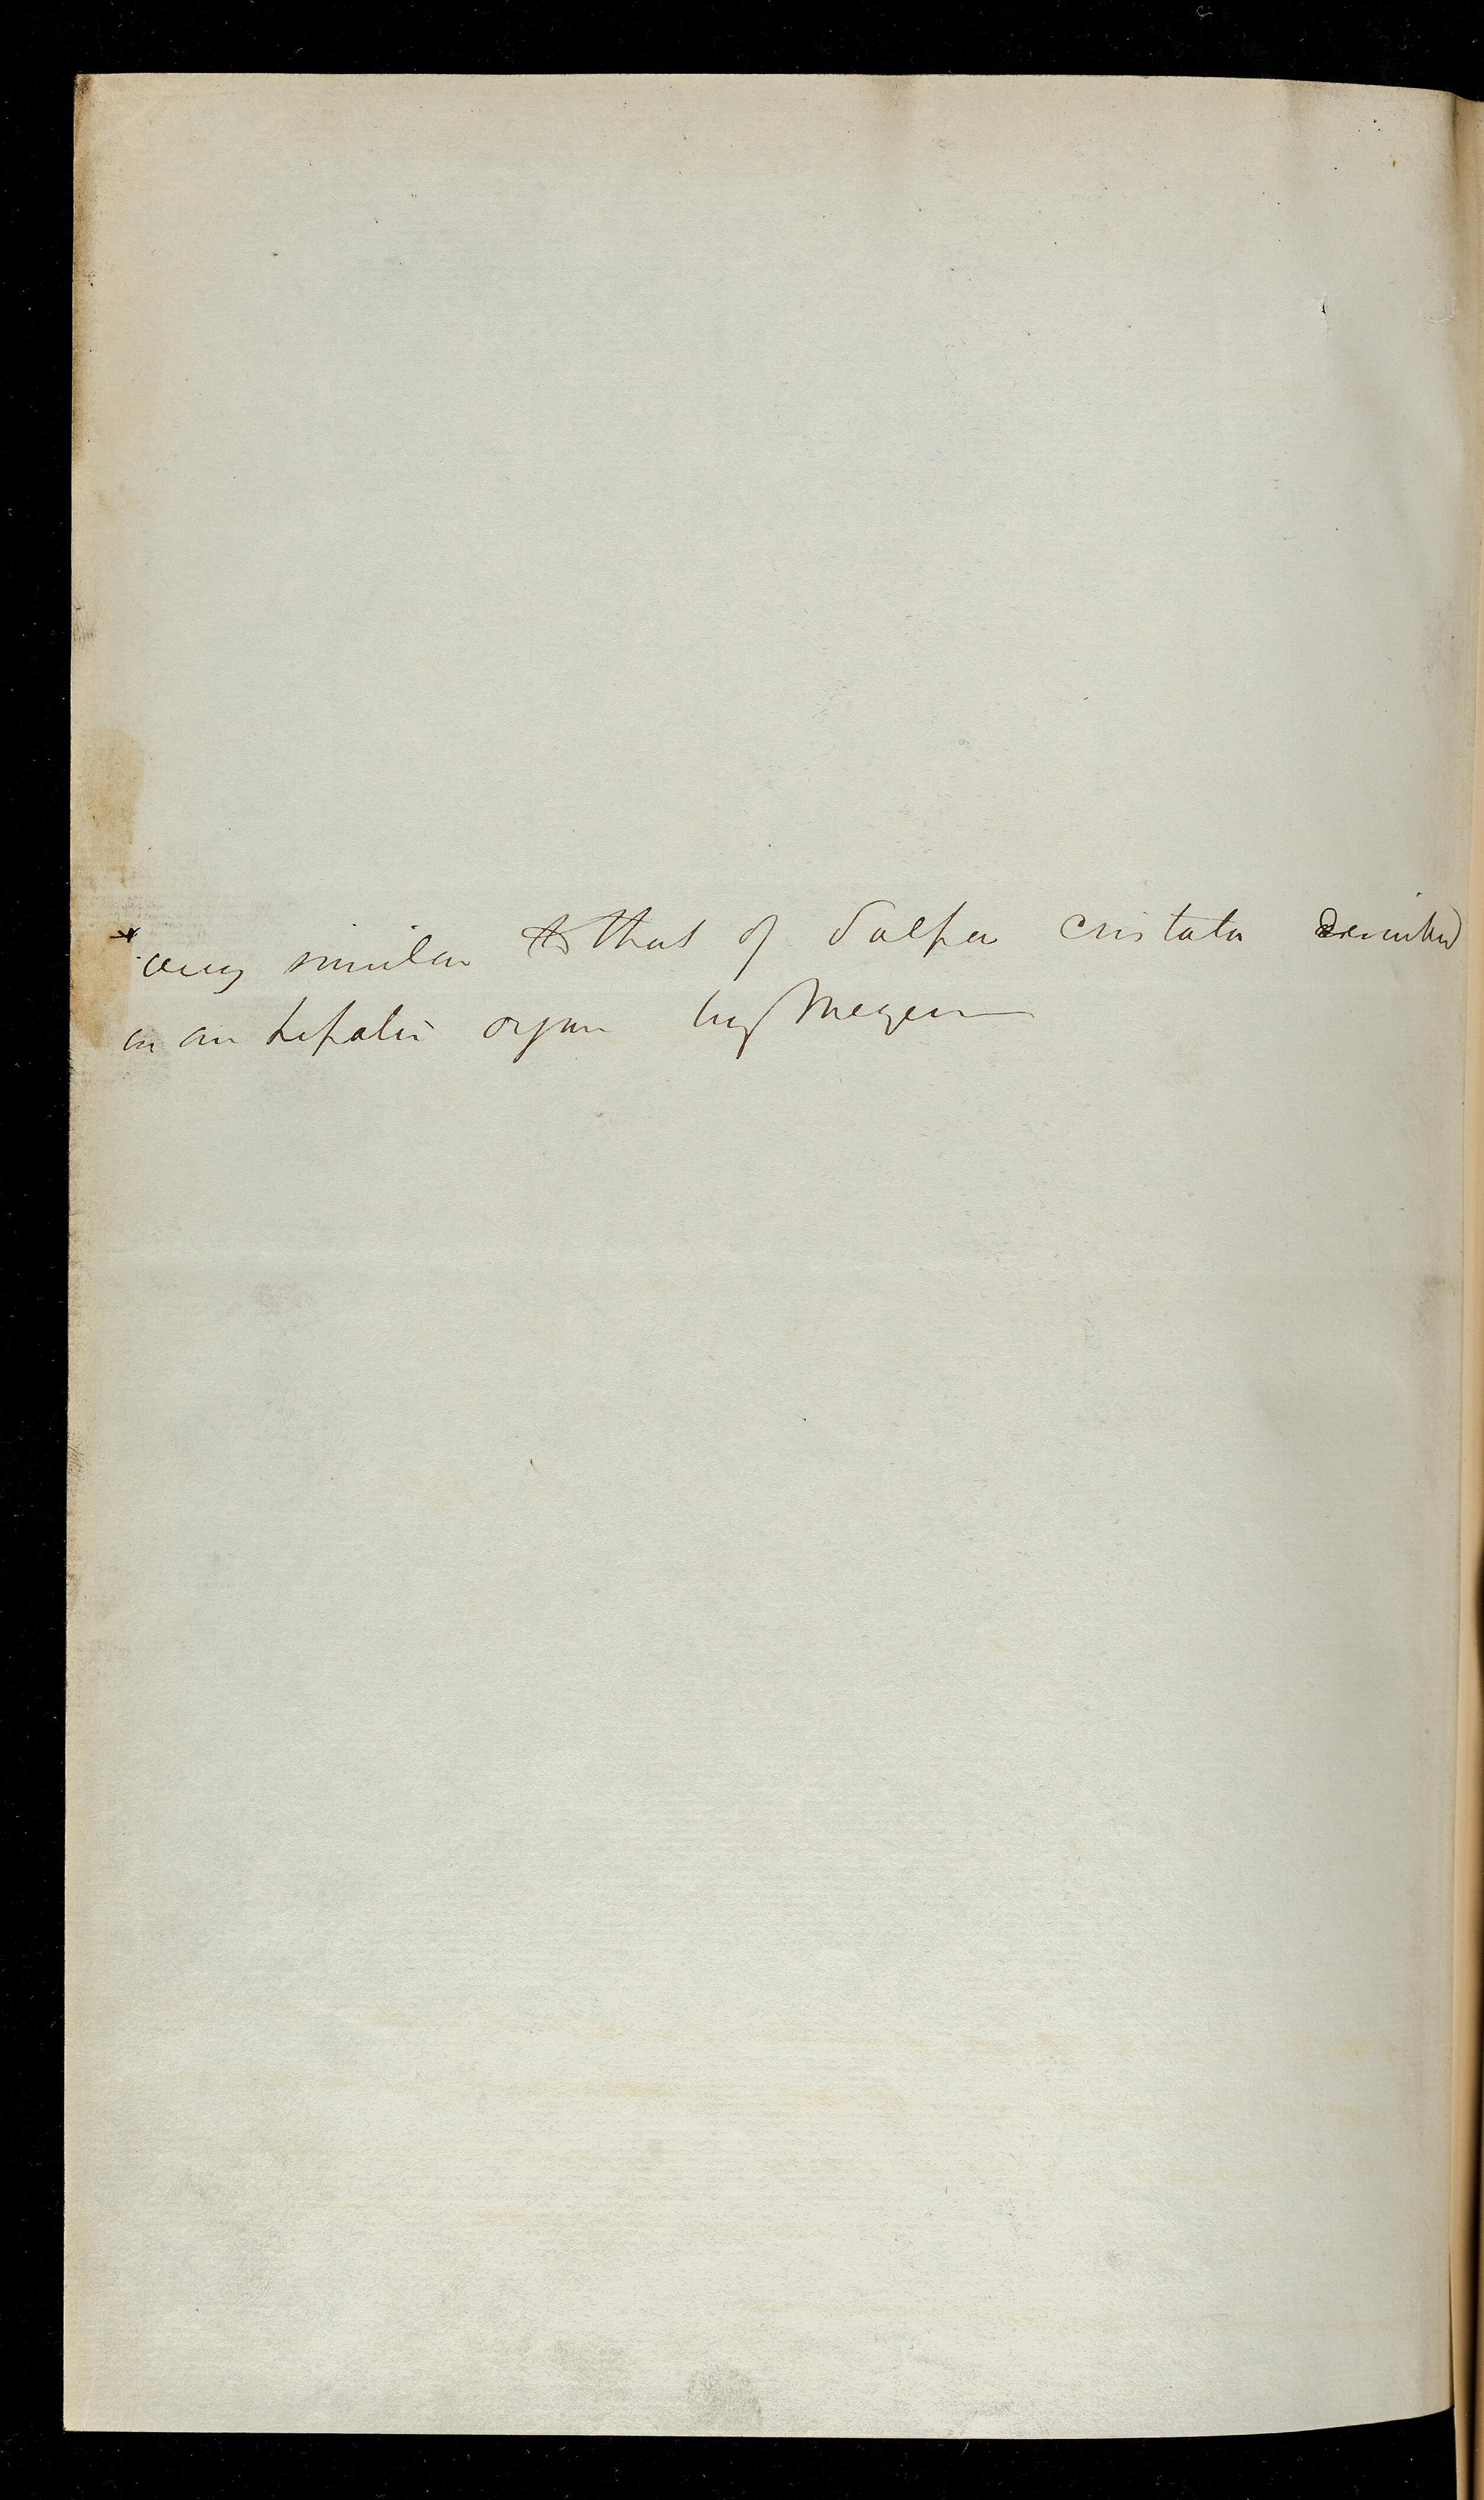 * very similar to that of Salpa cristata described
as an hepatic organ by Meyen